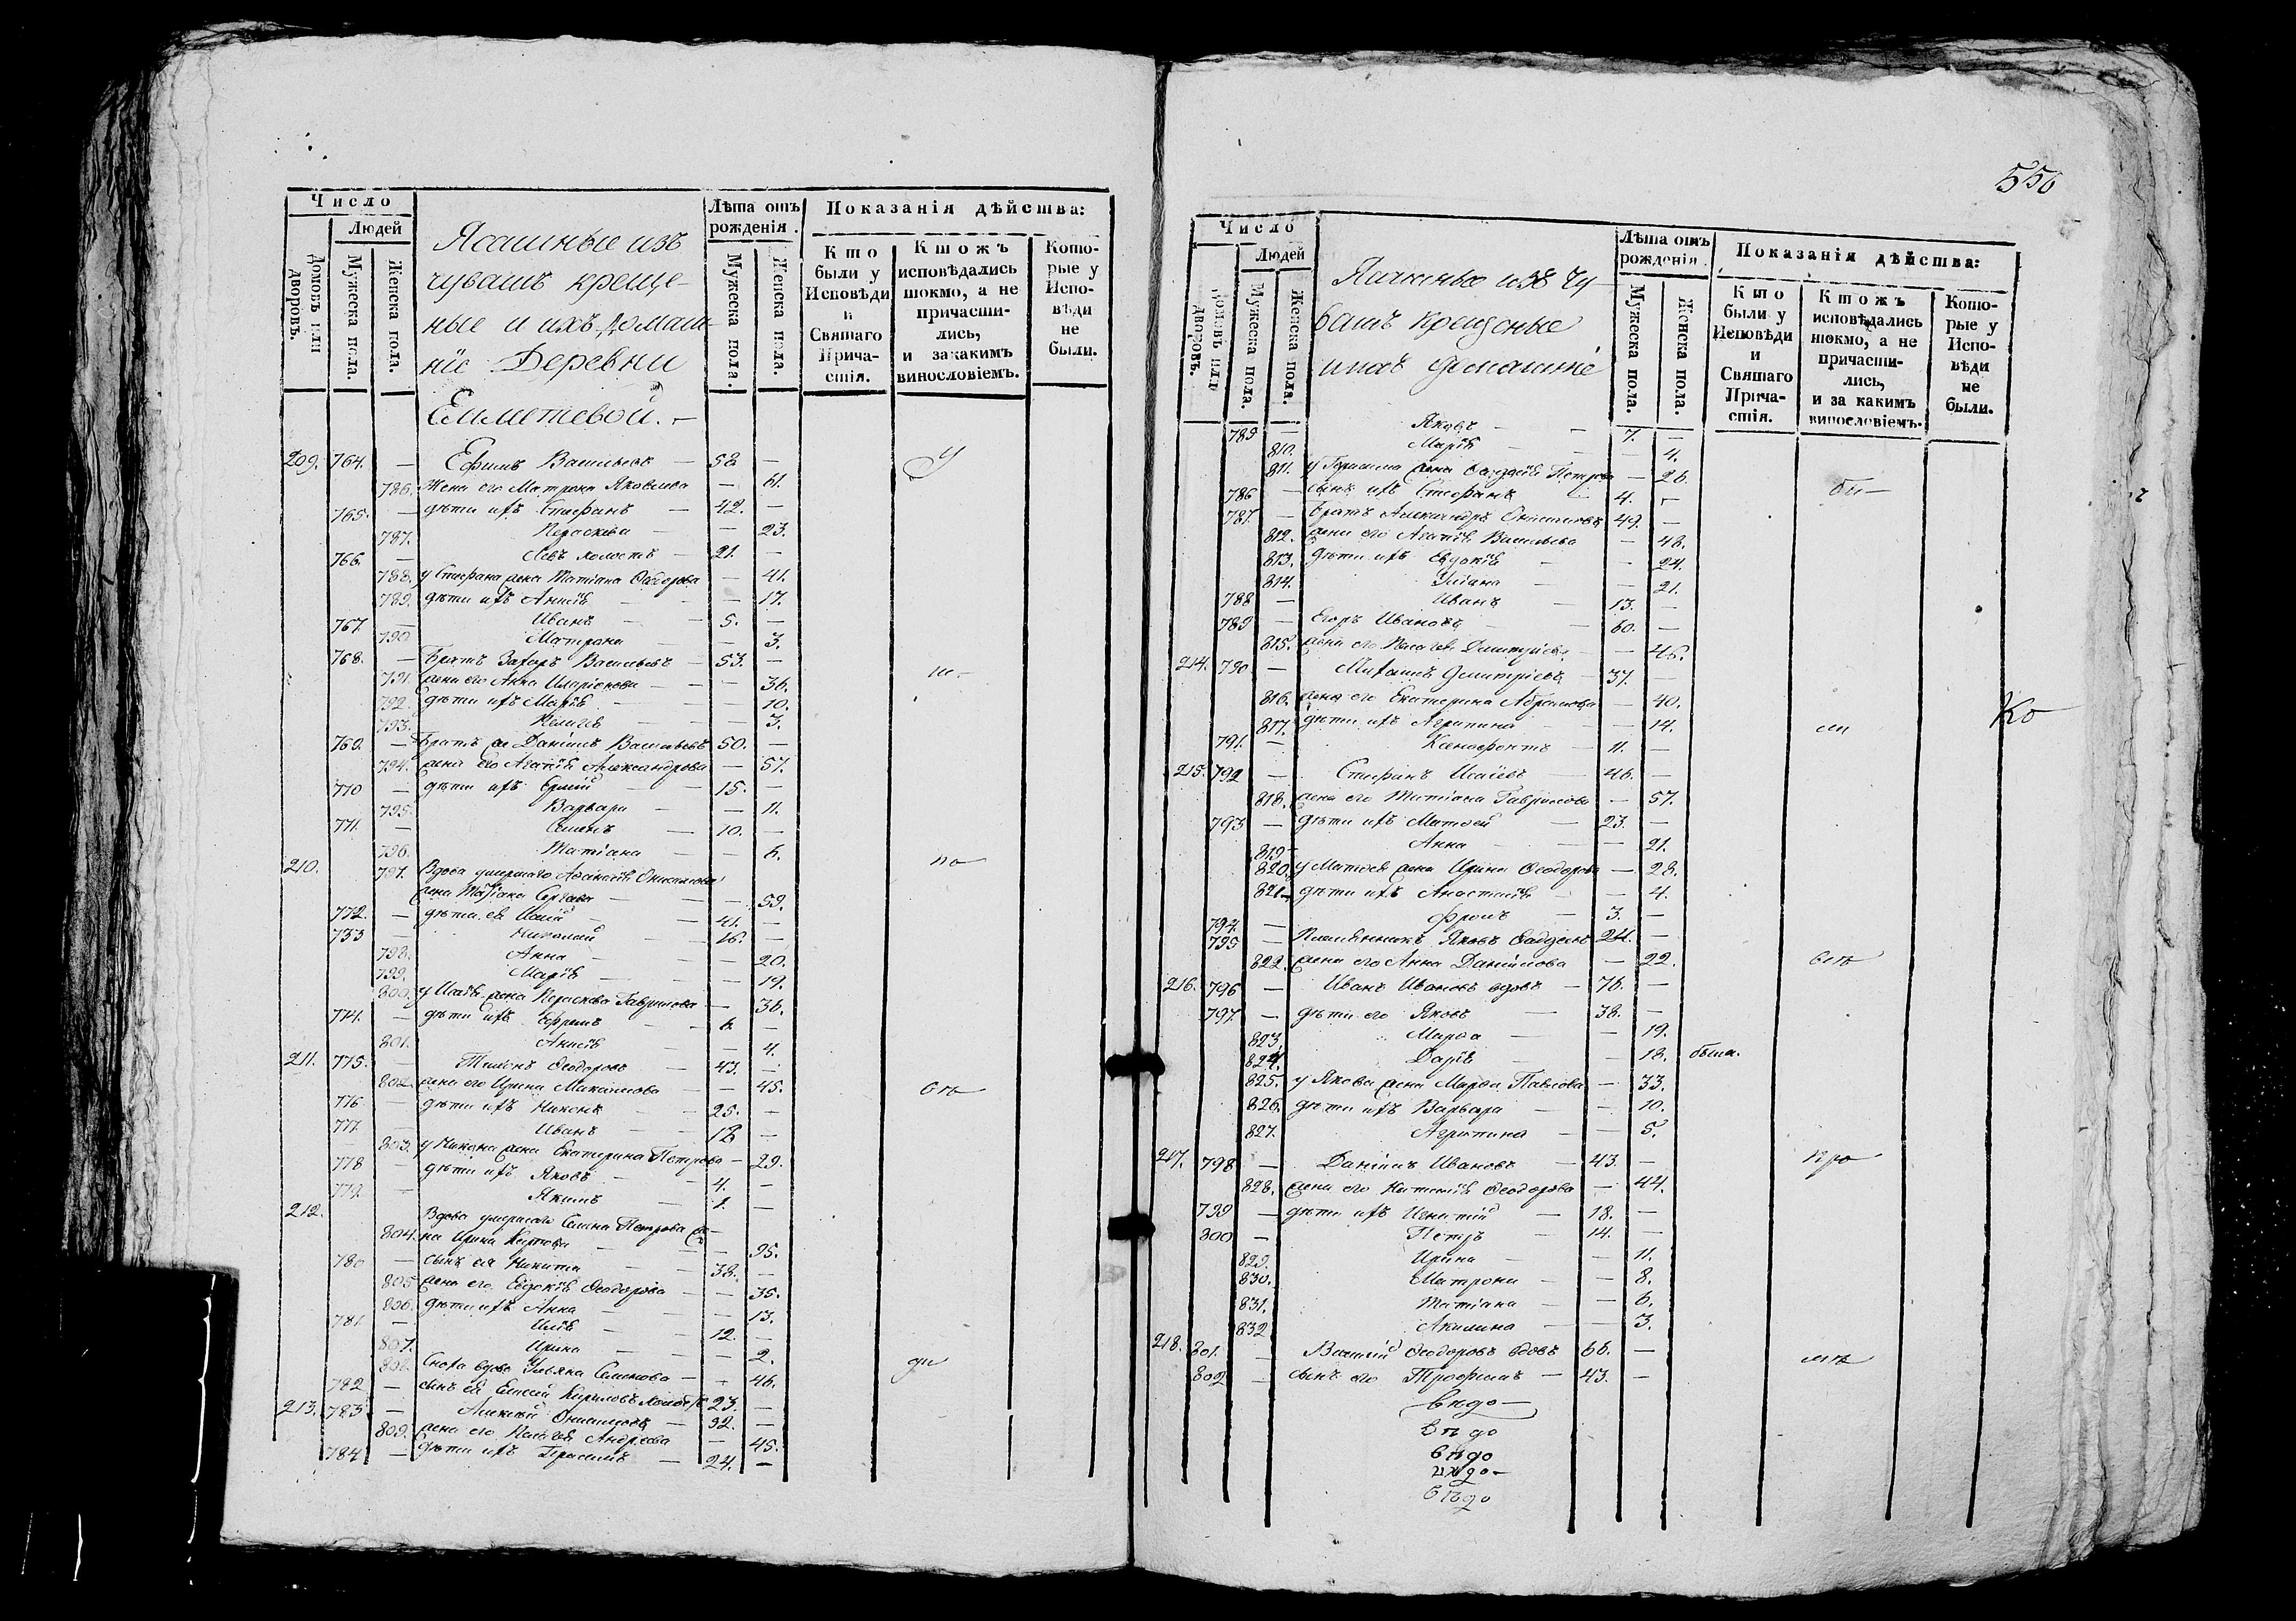 Число
Людей
Домовъ или дворовъ.
Мужеска пола.
Женска пола.
Ясашные изъ
чувашъ креще-
ные и ихъ домаш-
ніе Деревни
Лѣта отъ рожденія.
Мужеска пола.
Женска пола.
Показанія дѣйства:
Кто были у Исповѣди и Святаго Причастія.
Ктожъ исповѣдались токмо, а не причастились, и закакимъ винословіемъ.
Которые у Исповѣди не были.
209. 764. — Ефимъ Васильевъ — 58 —
786. Жена его Матрона Яковлева — 61.
765. — дѣти ихъ Стефанъ — 42. —
787. Параскева — — 23.
766. — Левъ холостъ — 21. —
788. у Стефана жена Татіана — 41.
789. дѣти ихъ Анисія — — 17.
767. — Иванъ — — 5. —
790 Матрона — — 3.
768. — Братъ Захаръ Васильевъ — 53. —
791. жена его Анна Иларіонова — — 36.
792. дѣти ихъ Марія — — 10.
793. Пелагея — — 3.
769. — Братъ Даніилъ Васильевъ 50. —
794. жена его Агафія Александрова — 57.
770 — дѣти ихъ — 15. —
795. Варвара — — 11.
771. — Семенъ — 10. —
796. Татіана — — 6.
210. 797. Вдова умершаго
жена Татіана Сергѣева — — 59.
772. — дѣти ея Исаій — 41. —
733 — Николай — 16. —
798. Анна — — 20.
799. Марія — — 19.
800. у Исаія жена Параскева Гаврилова — 36.
774. — дѣти ихъ Ефремъ — 6. —
801. Анисія — — 4.
211. 775. Ѳеодоровъ — 43. —
802. жена его Ирина Максимова — — 45.
776 — дѣти ихъ Никонъ — 25. —
777. — Иванъ — 18 —
803. у Никона жена Екатерина Петрова — 29.
778 — дѣти ихъ Яковъ — 4. —
779. — Якимъ — 1. —
212. Вдова умершаго Семена Петрова же-
804. на Ирина — — 95.
780 — сынъ ея Никита — 38. —
805 жена его Евдокія Ѳеодорова — — 35.
806. дѣти ихъ Анна — 13.
781. — Илія — 12. —
807. Ирина — — 2.
808. Сноха вдова Ульяна Семенова — — 46.
782 — сынъ ея Елисей Кириловъ холостъ 23. —
213. 783 — Алексѣй Онисимовъ — 32. —
809. жена его Пелагея Андреева — 45.
784 — дѣти ихъ Герасимъ — 24. —
556
Число
Людей
Домовъ или дворовъ.
Мужеска пола.
Женска пола.
Ясашные изъ Чу-
вашъ крещеные
ихъ домашніе
Лѣта отъ рожденія.
Мужеска пола.
Женска пола.
Показанія дѣйства:
Кто были у Исповѣди и Святаго Причастія.
Ктожъ исповѣдались токмо, а не причастились, и за какимъ винословіемъ.
Которые у Исповѣди не были.
789 — Яковъ — — 7. —
810. Марія — — 4.
811. у Герасима жена Петрова — 26.
786 — сынъ ихъ Стефанъ — 4. —
787. — Братъ Александръ Онисимовъ 49. —
812. жена его Агафія Васильева — 48.
813. дѣти ихъ Евдокія — — 24.
814. Уліана — — 21.
788 — Иванъ — 13. —
789 — Егоръ Ивановъ — 60. —
815. жена его Пелагея Димитріева — 46.
214. 790 — Димитріевъ — 37. —
816. жена его Екатерина Абрамова — 40.
817. дѣти ихъ Агрипина — 14.
791. — Ксенофонтъ — 11. —
Ко
215. 792 — Стефанъ Исаіевъ — 46. —
818. жена его Татіана Гаврилова — 57.
793 — дѣти ихъ Матвей — 23. —
819 Анна — — 21.
820. у Матвея жена Ирина Ѳеодорова — 28.
821. дѣти ихъ Анастасія — — 4.
794. — Фролъ — 3. —
795 — Племянникъ Яковъ 24. —
822. жена его Анна Данилова — 22.
216. 796 — Иванъ Ивановъ вдовъ — 76. —
797. — дѣти его Яковъ — 38. —
823. Марѳа — — 19.
824. Дарія — — 18. были.
825. у Якова жена Марѳа Павлова — 33.
826. дѣти ихъ Варвара — — 10.
827. Агрипина — — 5.
217. 798 — Даніилъ Ивановъ — 43. —
828. жена его Ѳеодорова — 44.
799 — дѣти ихъ Игнатій — 18. —
800 — Петръ — 14. —
829. Ирина — — 11.
830. Матрона — — 8.
831. Татіана — — 6.
832 Акилина — — 3.
218. 801. — Василій Ѳеодоровъ вдовъ 66. —
802 — сынъ его Трофимъ — 43. —